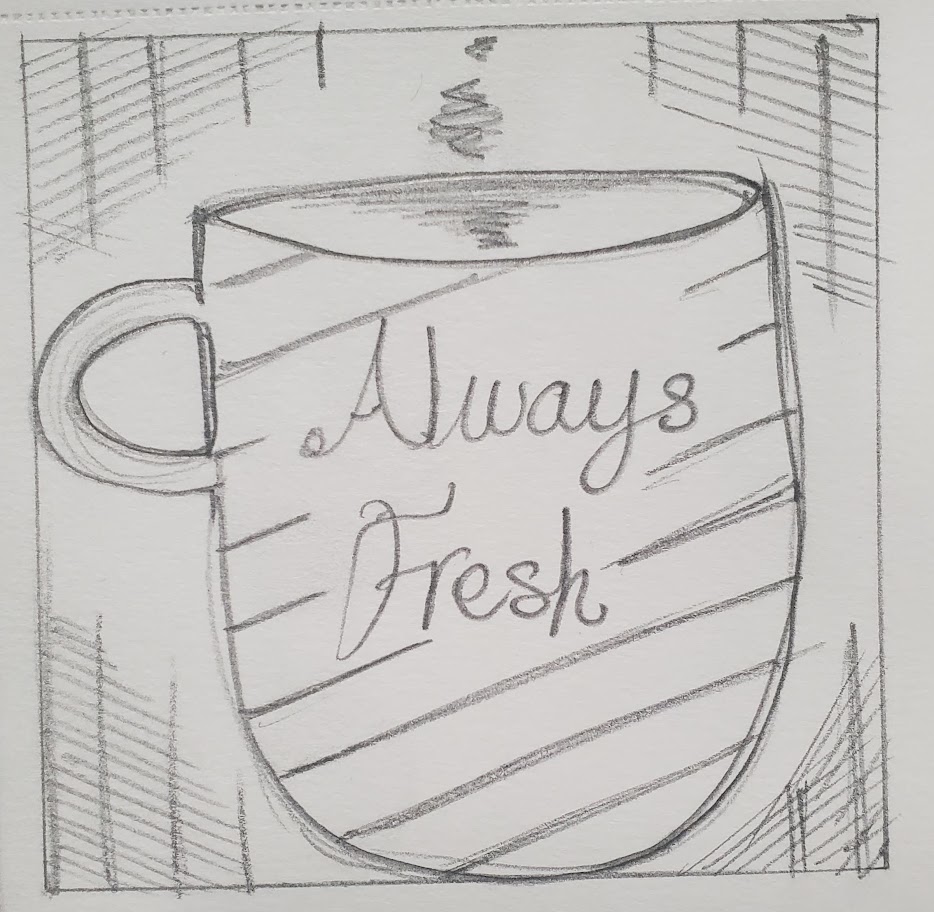 Always
Fresh